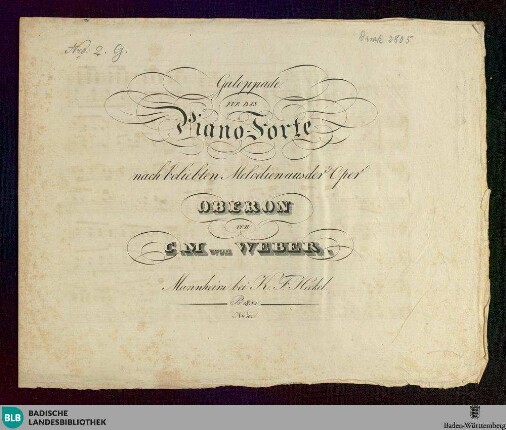 Nro. 2. G.
Druck 2805
Galoppade
FÜR DAS
Piano-Forte
nach beliebten Melodien aus der Oper
OBERON
von
C. M. von WEBER.
Mannheim bei K. F. Heckel.
BLB
BADISCHE
LANDESBIBLIOTHEK
Baden-Württemberg